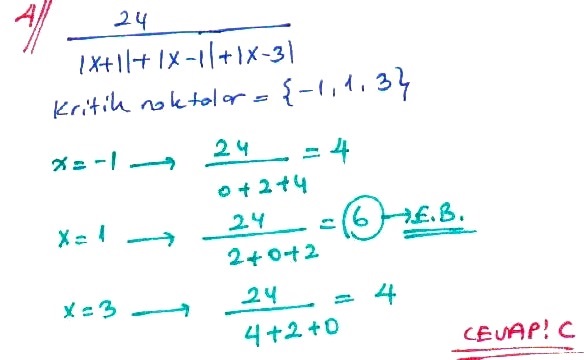 A// 24 / |x+1|+|x-1|+|x-3|
Kritik noktalar = {-1, 1, 3}
x=-1 → 24 / 0+2+4 = 4
x=1 → 24 / 2+0+2 = 6 → E.B.
x=3 → 24 / 4+2+0 = 4
CEVAP! C